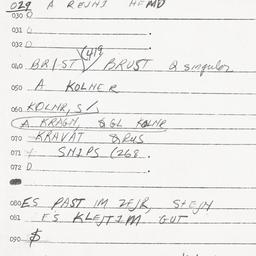 029 A REJNI HEMD
030 0
031 0
032 0
(419
040 BRIST BRUST 2 singular
050 A KOLNER
060 KOLNR, S/.
A KRAGN, & GL KOLNR
070 KRAVAT
071 SHIPS (268
072 0
080 ES PAST IM ZEJR, SHEJN
081 ES KLEJT IM GUT
090 $